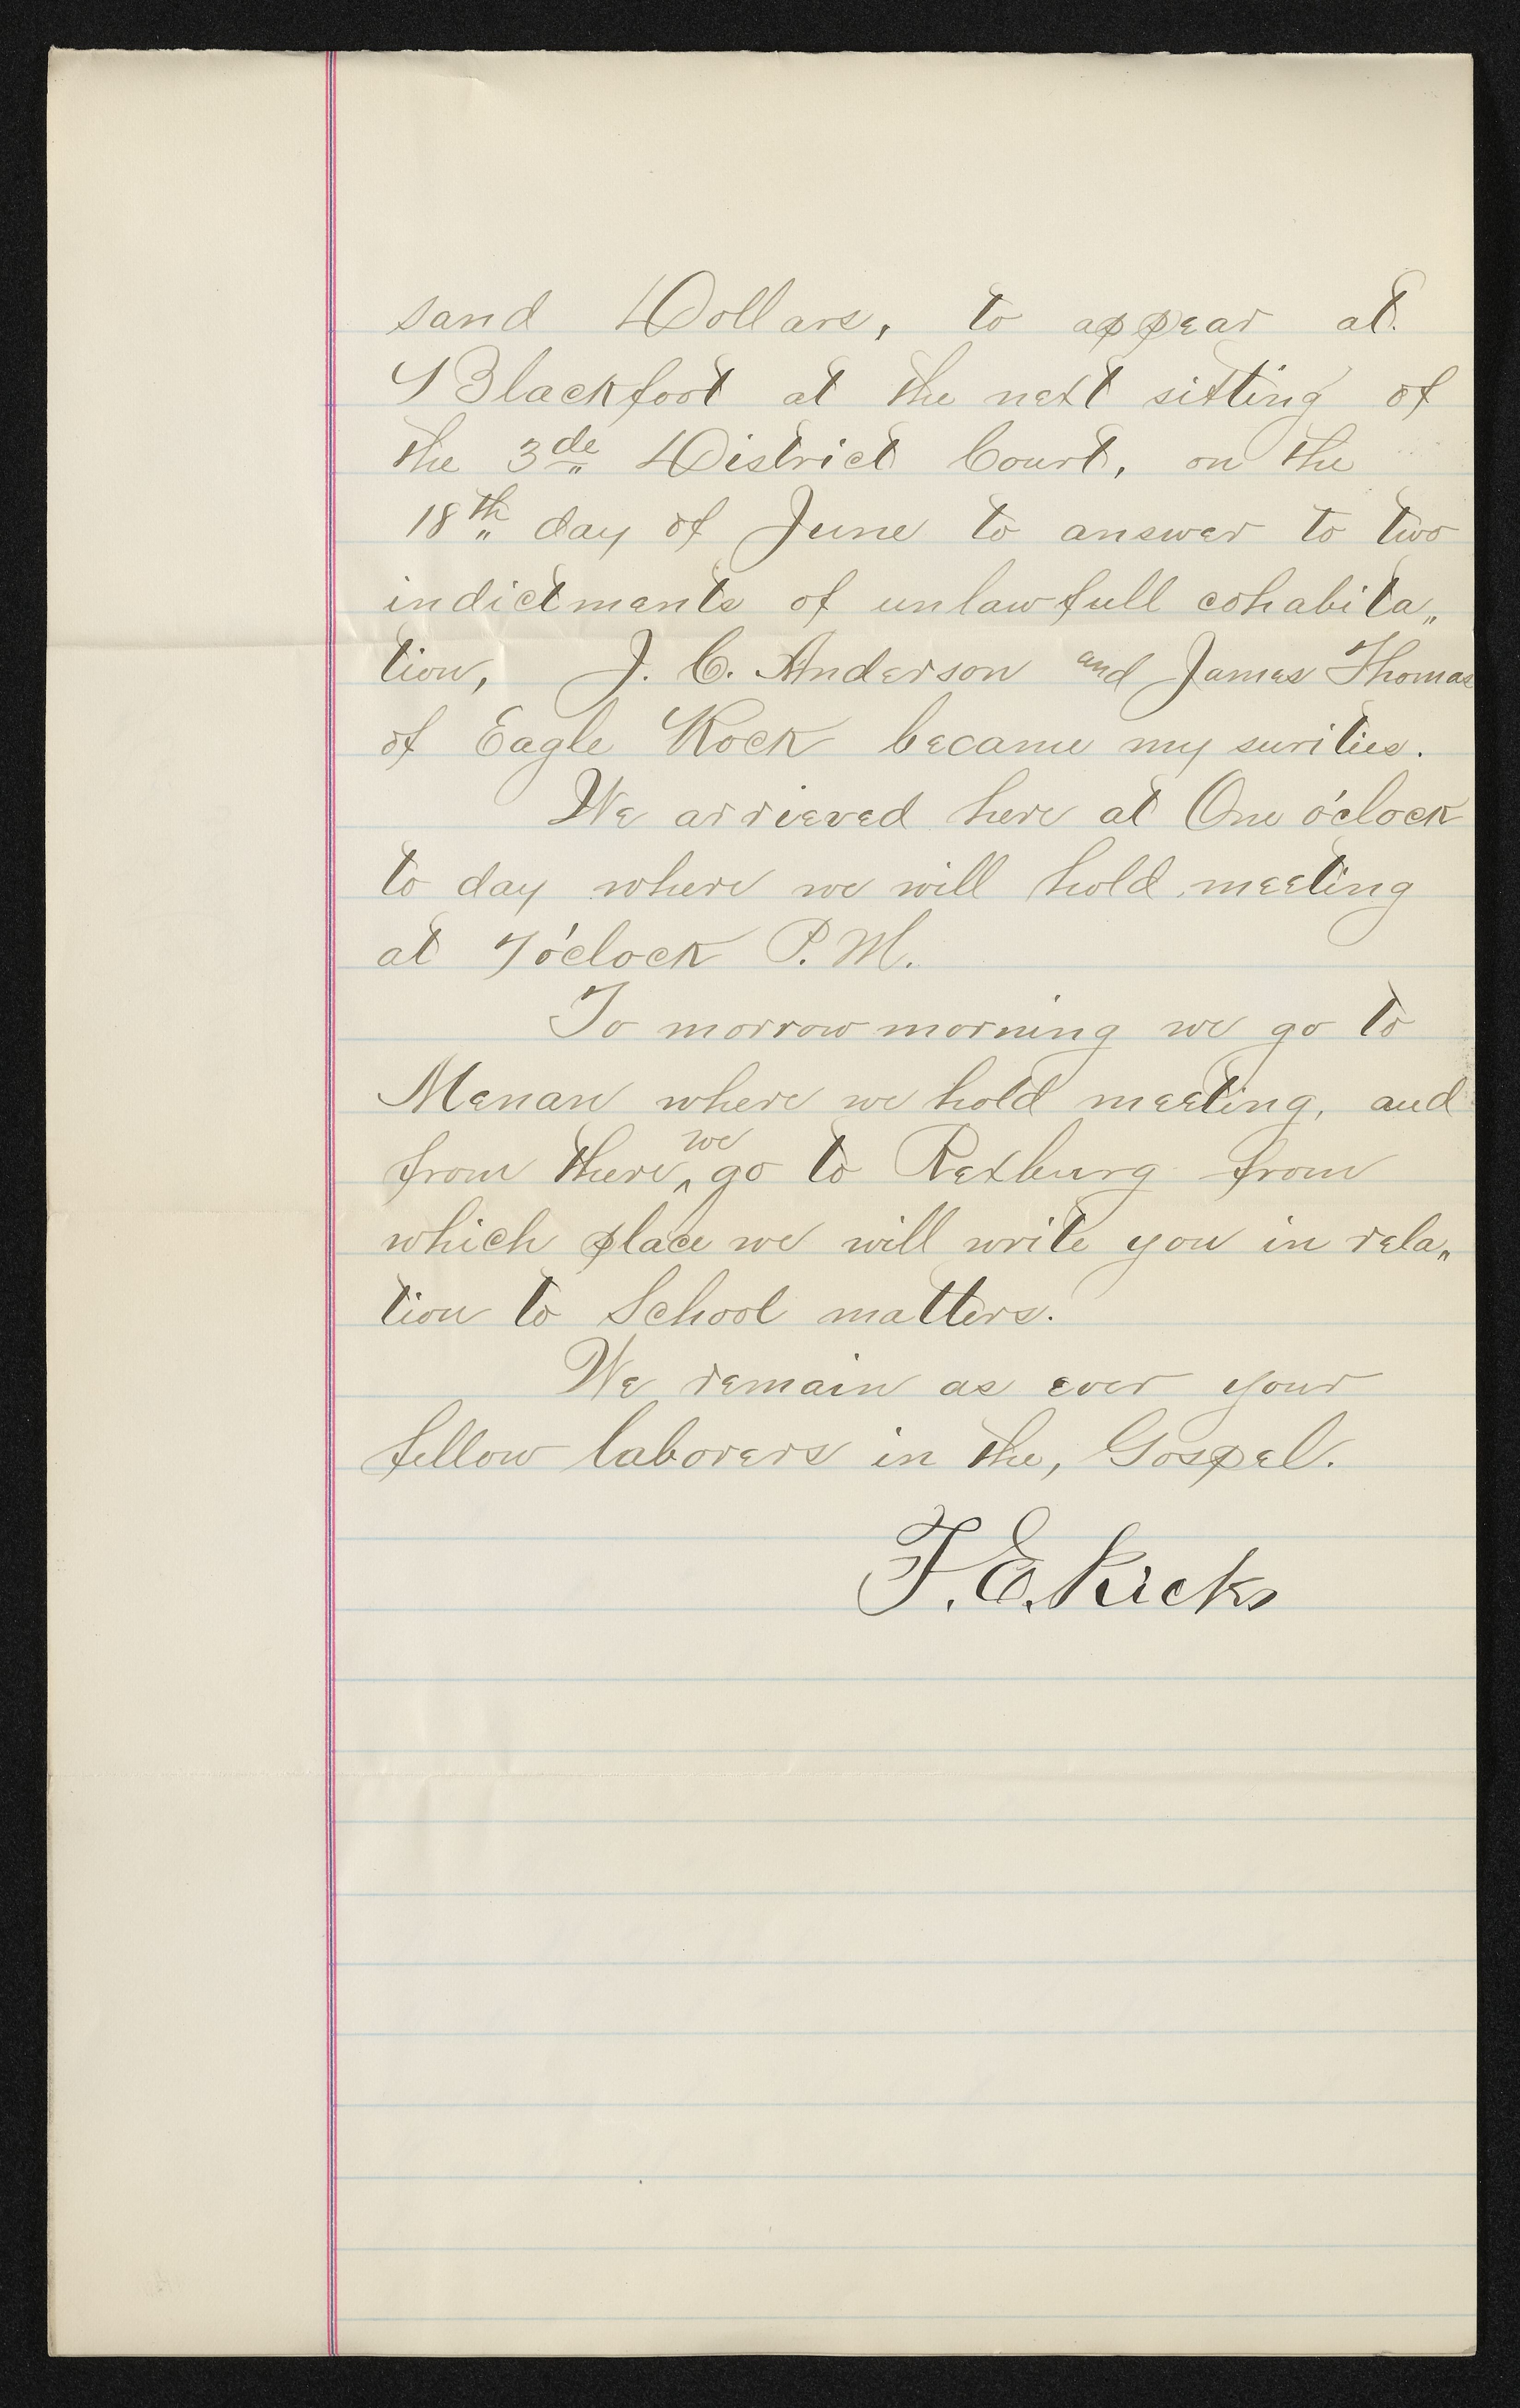 sand Dollars, to appear at.
Blackfoot at the next sitting of
the 3de District Court, on the
18th day of June to answer to two
indictments of unlawfull cohabita„
tion, J. C. Anderson and James Thomas
of Eagle Rock became my surities.
We arrieved here at One o'clock
to day where we will hold meeting
at 7 o'clock P. M.
To morrow morning we go to
Menan where we hold meeting, and
from there ^we go to Rexburg from
which place we will write you in rela„
tion to School matters.
We remain as ever your
fellow laborers in the, Gospel.
T. E. Ricks